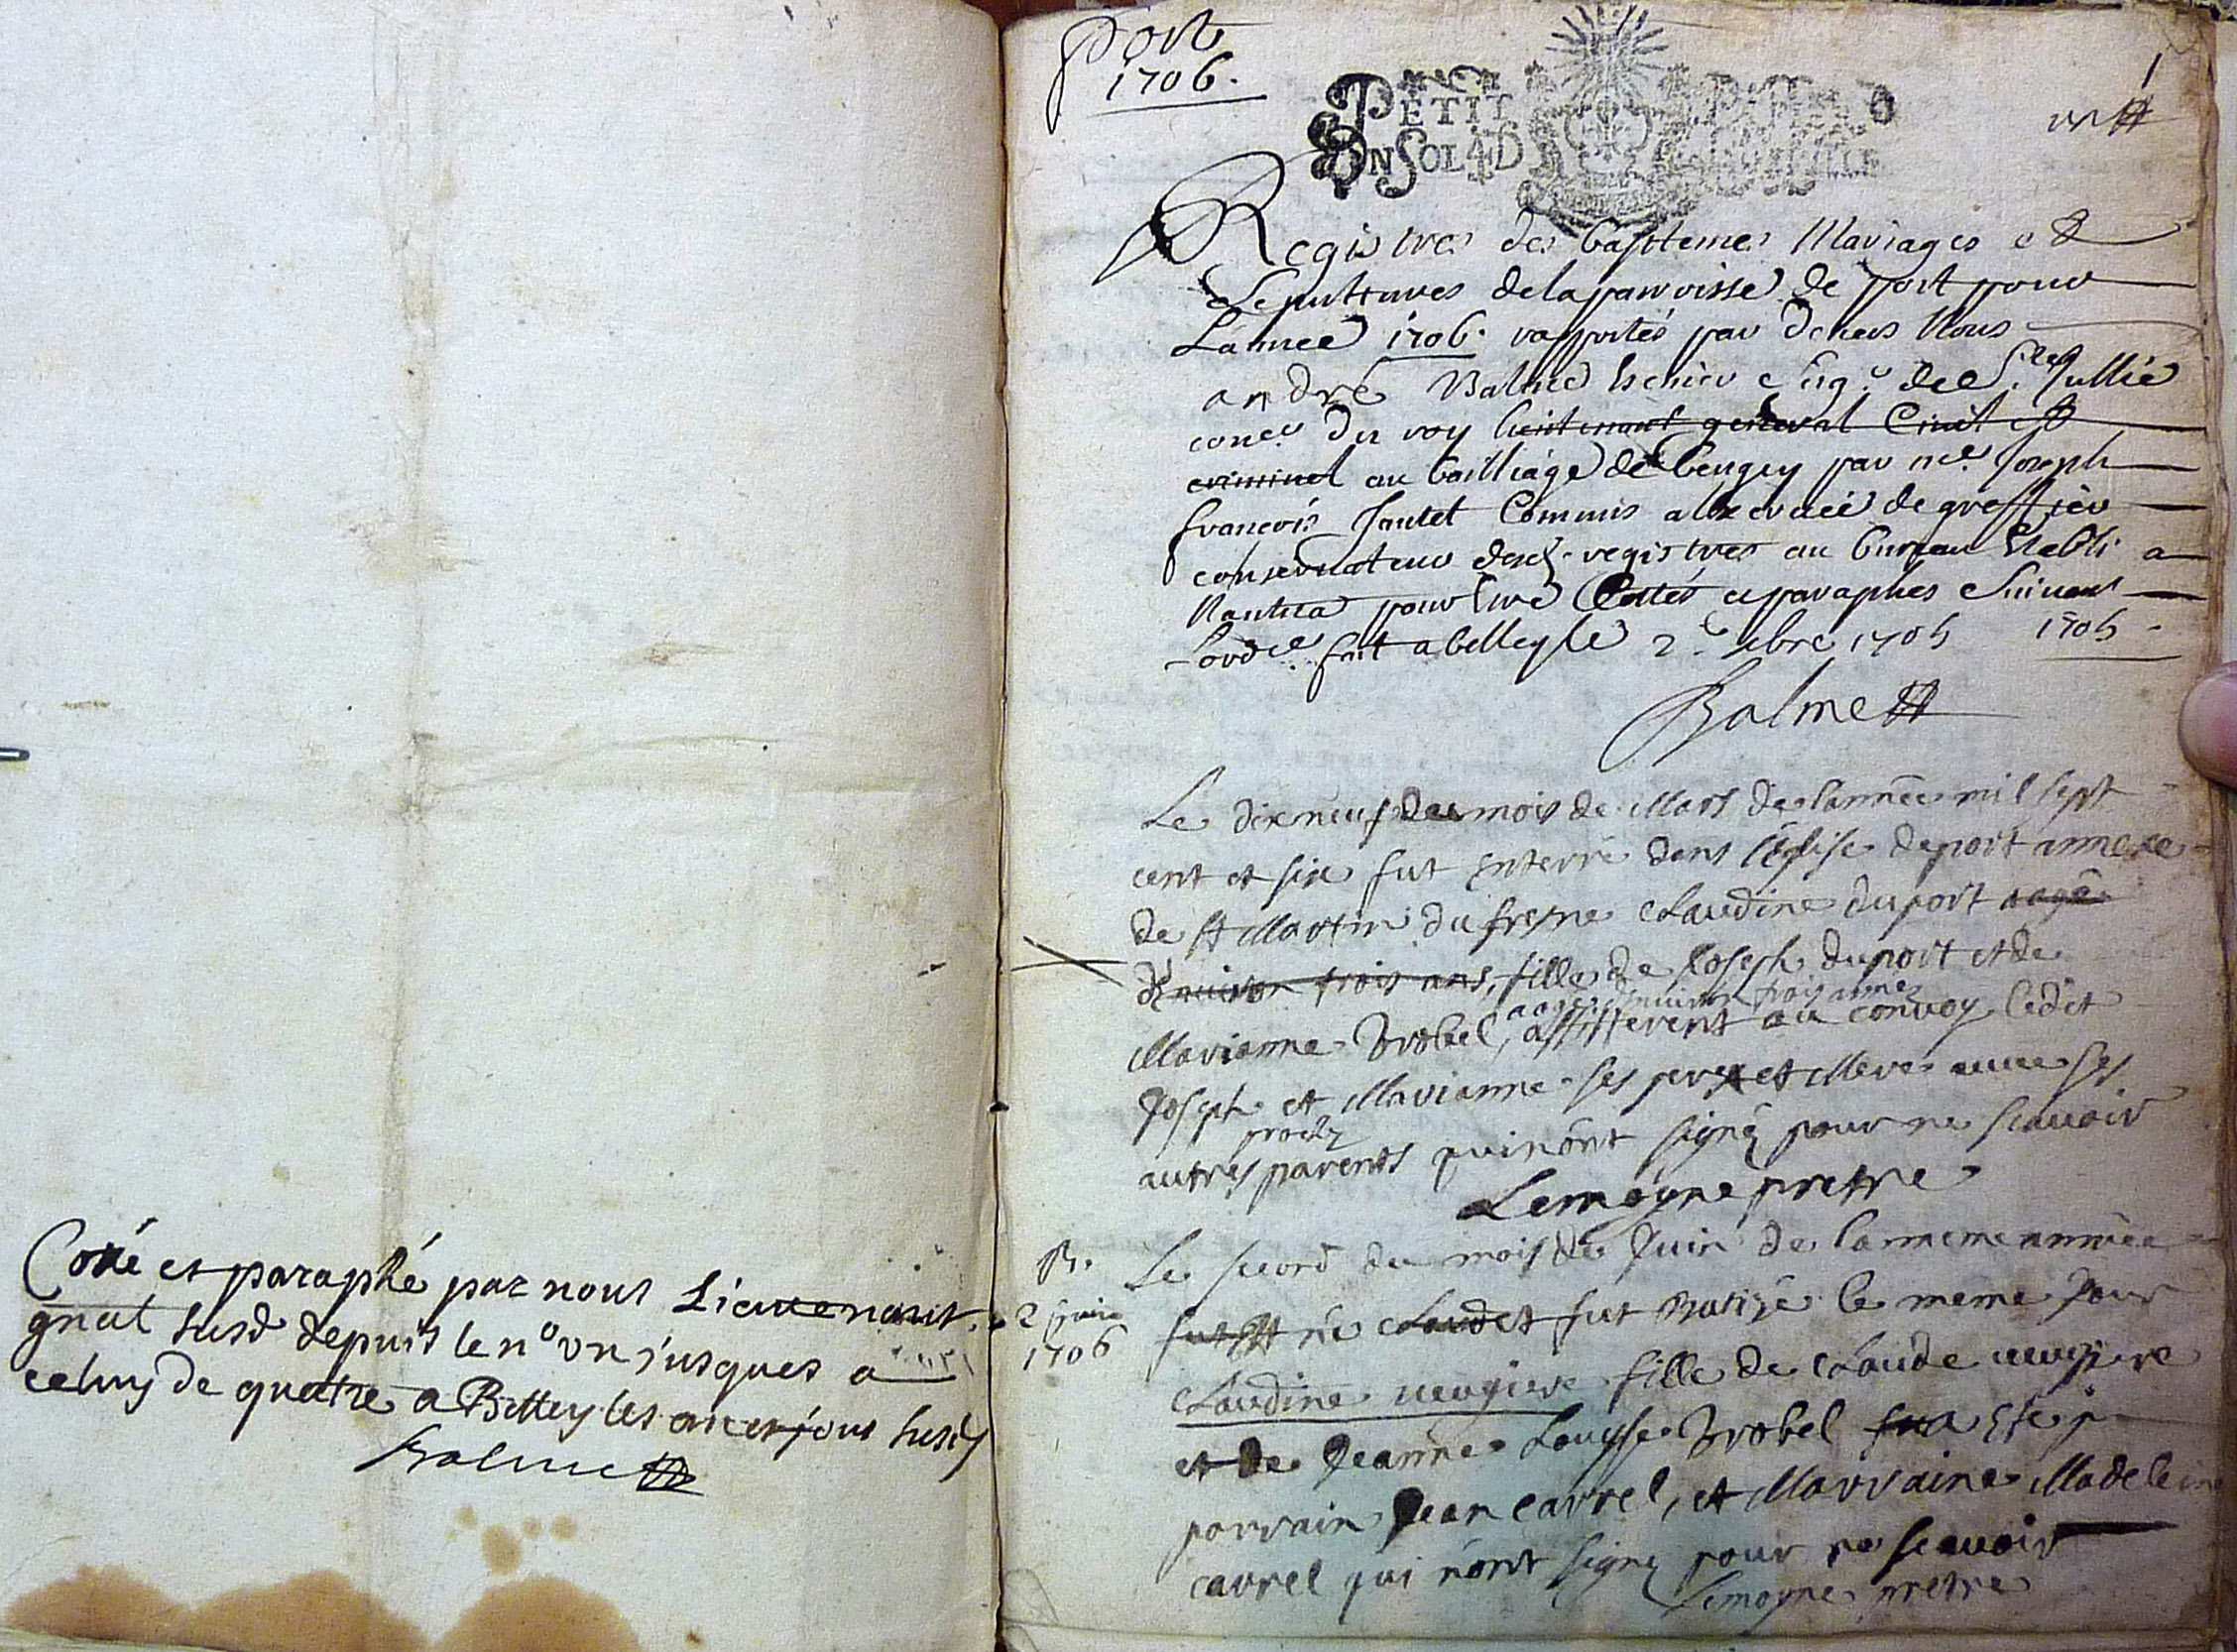 Coté et paraphé par nous Lieutenant
gnal susd depuis le n° un jusques a
celuy de quatre a Belley les an et jour susd
Balme
Port
1706.
1
un
PETIT PAPIER
UN SOL 4 D
Registres des baptemes Mariages et
Sepultures de la parroisse de port pour
Lannee 1706. rapportés par devers Nous
andré Balme Escuier Seigr de Ste Jullie
coner du roy lieutenant general Civil et
criminel au bailliage de beugey par me Joseph
francois Jantet Commis a lexercice de greffier
conservateur desd. registres au bureau Etabli a
Nantua pour Etre Cottés et paraphes Suivant
Lorde fait a belley le 2e xbre 1705 1705.
Balme
Le dixneuf du mois de Mars de lannee mil sept
cent et six fut Enterré dans l'Eglise de port annexe
de St Martin du fresne Claudine duport aagé
d'environ trois ans, fille de Joseph duport et de
aagée d'environ trois années
Marianne Brobel, assisterent au convoy ledit
Joseph et Marianne ses pere et Mere avec ses
proches
autres parents qui n'ont signé pour ne scavoir
Lemoyne pretre
B.
2 juin
1706
Le second du mois de Juin de la meme année
fut née et fut Batizé le même Jour
Claudine neugiere fille de Claude neugiere
et de Jeanne Louyse Brobel
parrain Jean Carrel, et Marraine Madeleine
carrel qui n'ont signé pour ne scavoir
Lemoyne pretre